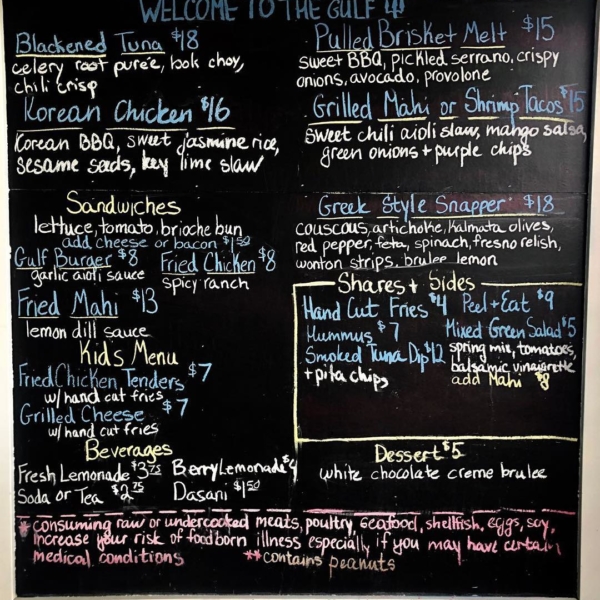 WELCOME TO THE GULF!
Blackened Tuna $18
celery root pureé, bok choy,
chili crisp
Korean Chicken $16
Korean BBQ, sweet jasmine rice,
sesame seeds, key lime slaw
Sandwiches
lettuce, tomato, brioche bun
add cheese or bacon $1.50
Gulf Burger $8
garlic aioli sauce
Fried Chicken $8
spicy ranch
Fried Mahi $13
lemon dill sauce
Kids Menu
Fried Chicken Tenders $7
w/hand cut fries
Grilled Cheese $7
w/hand cut fries
Beverages
Fresh Lemonade $3.75
Berry Lemonade $4
Soda or Tea $2.75
Dasani $1.50
Pulled Brisket Melt $15
sweet BBQ, pickled serrano, crispy
onions, avocado, provolone
Grilled Mahi or Shrimp Tacos $15
sweet chili aioli slaw, mango salsa,
green onions + purple chips
Greek Style Snapper $18
couscous, artichoke, Kalmata olives,
red pepper, feta, spinach, fresno relish,
wonton strips, brulee lemon
Shares + Sides
Hand Cut Fries $4
Peel + Eat $9
Hummus $7
Mixed Green Salad $5
Smoked Tuna Dip $12
+ pita chips
spring mix, tomatoes,
balsamic vinaigrette
add Mahi $8
Dessert $5
white chocolate creme brulee
*consuming raw or undercooked meats, poultry, seafood, shellfish, eggs, soy,
increase your risk of foodborn illness especially if you may have certain
medical conditions
**contains peanuts